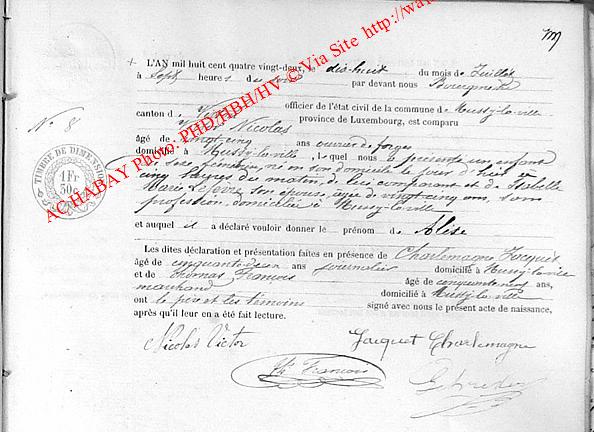 L'AN mil huit cent quatre vingt-deux, le dix-huit du mois de Juillet
à Sept heures du par devant nous Bourgmestre
officier de l'état civil de la commune de Mussy-la-ville
canton de province de Luxembourg, est comparu
Nicolas
N° 8
âgé de vingt-cinq ans ouvrier de forges
domicilié à Mussy-la-ville, lequel nous a présenté un enfant
de sexe féminin, né en son domicile le jour d'hier
cinq heures du matin, de lui comparant et de
Marie son épouse, âgée de vingt-cinq ans, sans
profession, domiciliée à Mussy-la-ville
et auquel il a déclaré vouloir donner le prénom de Alise
Les dites déclaration et présentation faites en présence de Charlemagne Jacquet
âgé de cinquante-deux ans journalier domicilié à Mussy-la-ville
et de Thomas François âgé de cinquante ans,
marchand domicilié à Mussy-la-ville
ont le père et les témoins signé avec nous le présent acte de naissance,
après qu'il leur en a été fait lecture.
Nicolas Victor Jacquet Charlemagne
François
TIMBRE DE DIMENSION
1 Fr
50 c
AC HABAY Photo. PHD/HBH/HV © Via Site http://wa